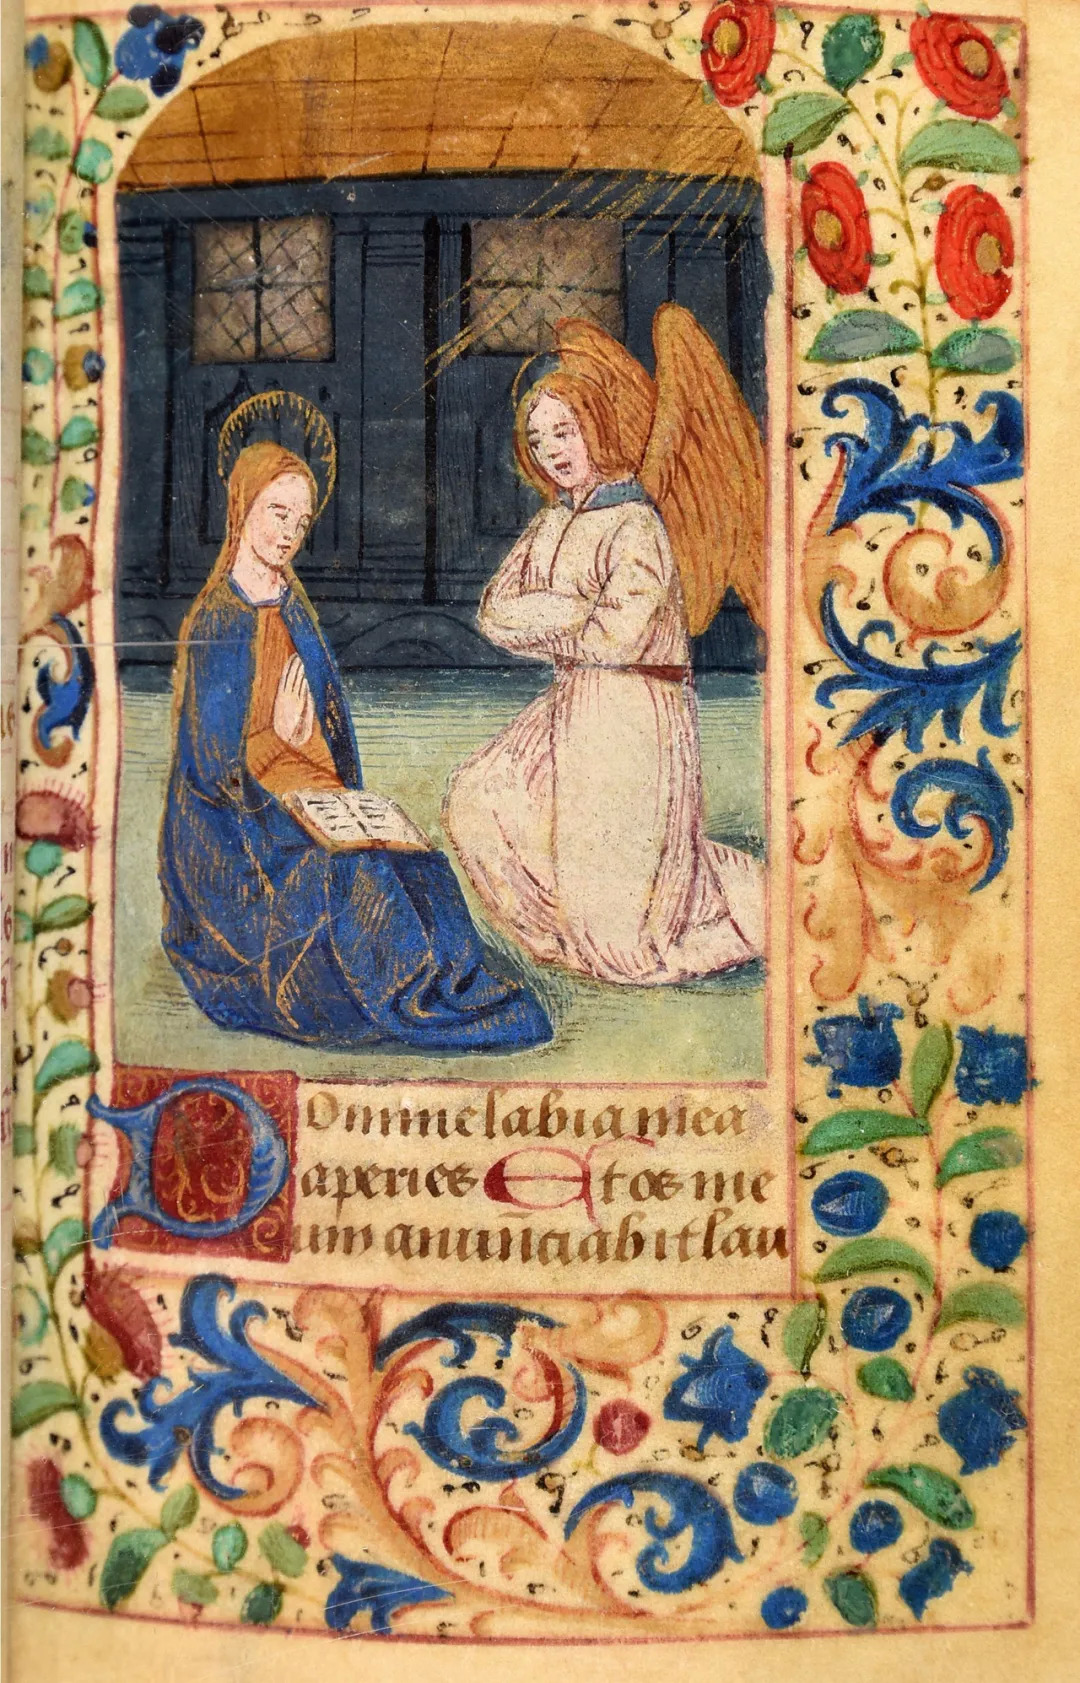 Domine labia mea
aperies Et os me
um annūciabit lau